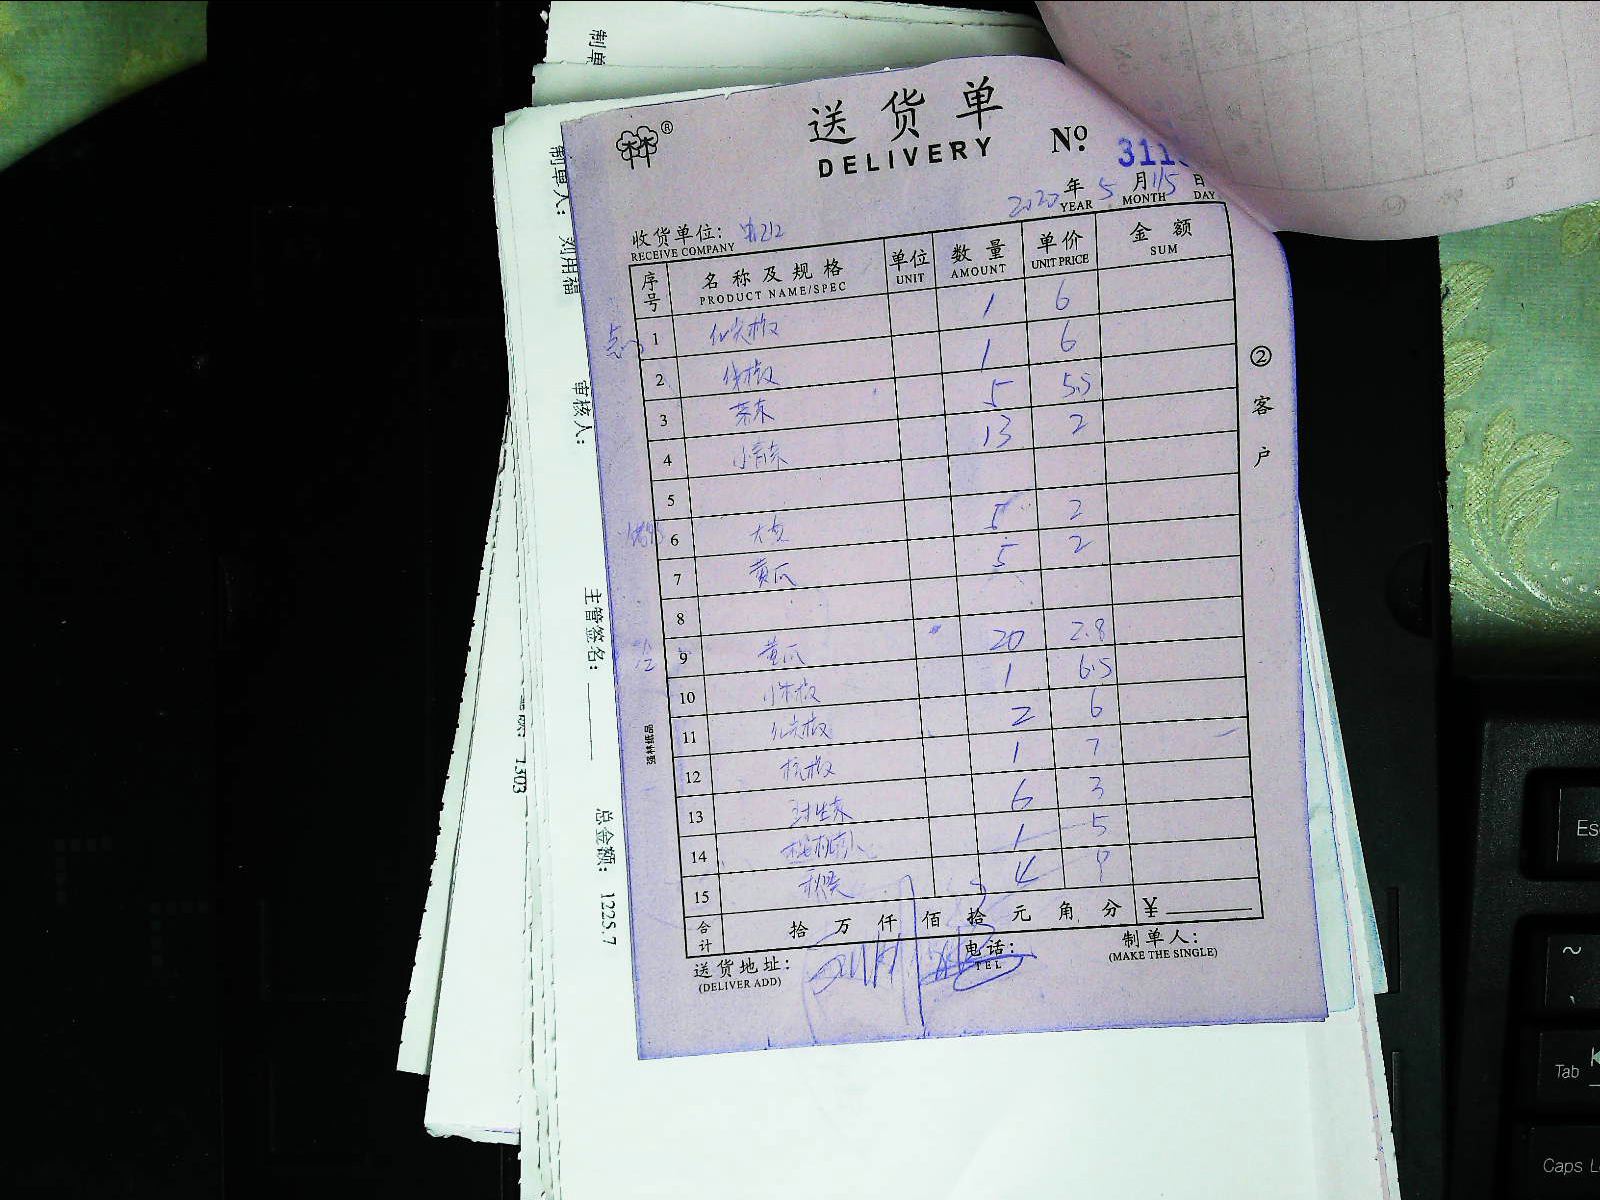 制单
制单人： 刘用福
审核人：
主管签名：
1303
总金额： 1225.7
林®
送货单
DELIVERY
№ 311
2020 年 5 月 15 日
YEAR MONTH DAY
收货单位：
RECEIVE COMPANY
序号 名称及规格 单位 数量 单价 金额
PRODUCT NAME/SPEC UNIT AMOUNT UNIT PRICE SUM
1 红尖椒 1 6
2 1 6
3 5 5.5
4 小青菜 13 2
5
6 5 2
7 黄瓜 5 2
8
9 黄瓜 20 2.8
10 小米椒 1 6.5
11 红尖椒 2 6
12 杭椒 1 7
13 6 3
14 1 5
15 秋葵 4 9
合计 拾 万 仟 佰 拾 元 角 分 ¥
送货地址：
(DELIVER ADD)
电话：
TEL
制单人：
(MAKE THE SINGLE)
② 客户
强林纸品
Esc
~
Tab
Caps L